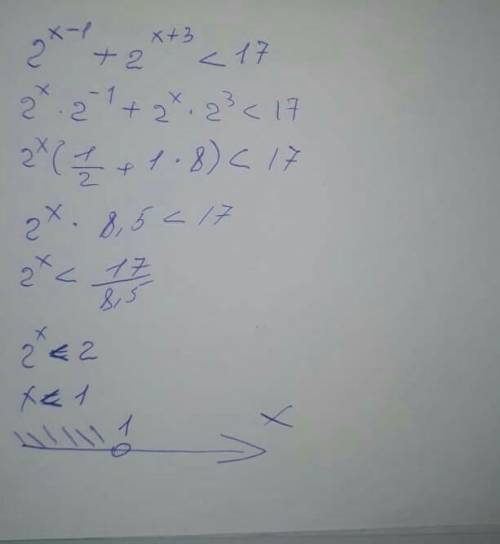 2^{x-1} + 2^{x+3} < 17
2^x · 2^{-1} + 2^x · 2^3 < 17
2^x (1/2 + 1 · 8) < 17
2^x · 8,5 < 17
2^x < 17/8,5
2^x < 2
x < 1
1 x